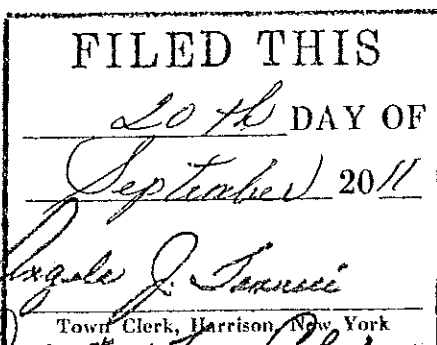 FILED THIS
20th DAY OF
September 2011
J.
Town Clerk, Harrison, New York